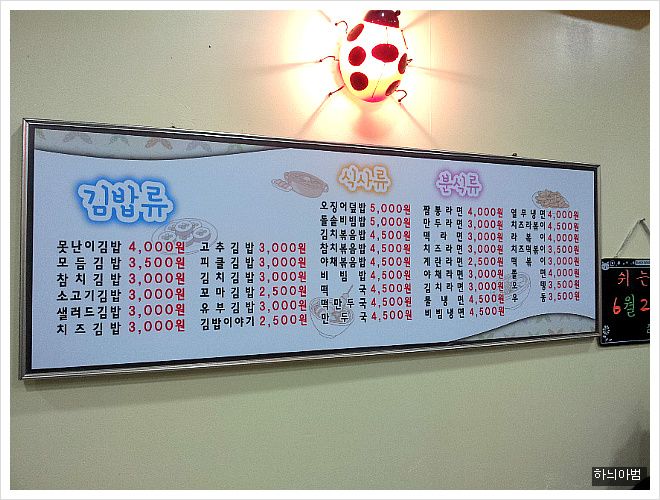 김밥류
못난이김밥 4,000원
모듬김밥 3,500원
참치김밥 3,000원
소고기김밥 3,000원
샐러드김밥 3,000원
치즈김밥 3,000원
고추김밥 3,000원
피클김밥 3,000원
김치김밥 3,000원
꼬마김밥 2,500원
유부김밥 3,000원
김밥이야기 2,500원
식사류
오징어덮밥 5,000원
돌솥비빔밥 5,000원
김치볶음밥 4,500원
참치볶음밥 4,500원
야채볶음밥 4,500원
비빔밥 4,500원
떡국 4,500원
떡만두국 4,500원
만두국 4,500원
분식류
짬뽕라면 4,000원
만두라면 3,000원
떡라면 3,000원
치즈라면 3,000원
계란라면 2,500원
야채라면 3,000원
김치라면 3,000원
물냉면 4,500원
비빔냉면 4,500원
열무냉면 4,000원
치즈라볶이 4,500원
라볶이 4,000원
치즈떡볶이 3,500원
떡볶이 3,000원
쫄면 4,000원
오뎅 3,500원
우동 3,500원
쉬는
6월 2
하늬아범